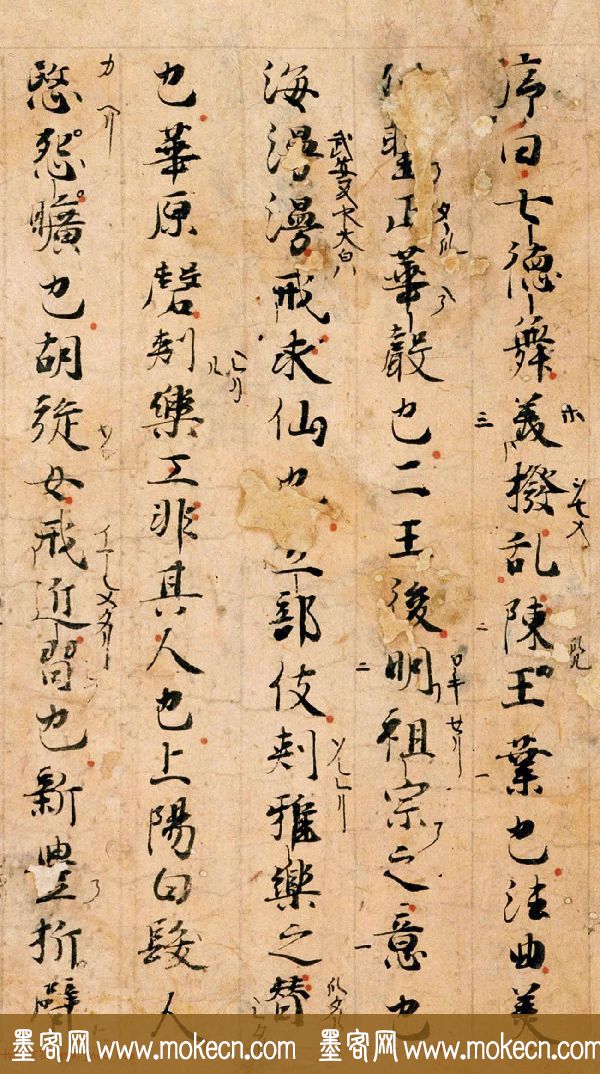 序曰七德舞美撥乱陳王業也法曲美
聖正華聲也二王後明祖宗之意也
海漫漫戒求仙也部伎刺雅樂之替
也華原磬刺樂工非其人也上陽白髮人
愍怨曠也胡旋女戒近習也新豊折臂
墨客网 www.mokecn.com 墨客网 www.mokecn.com